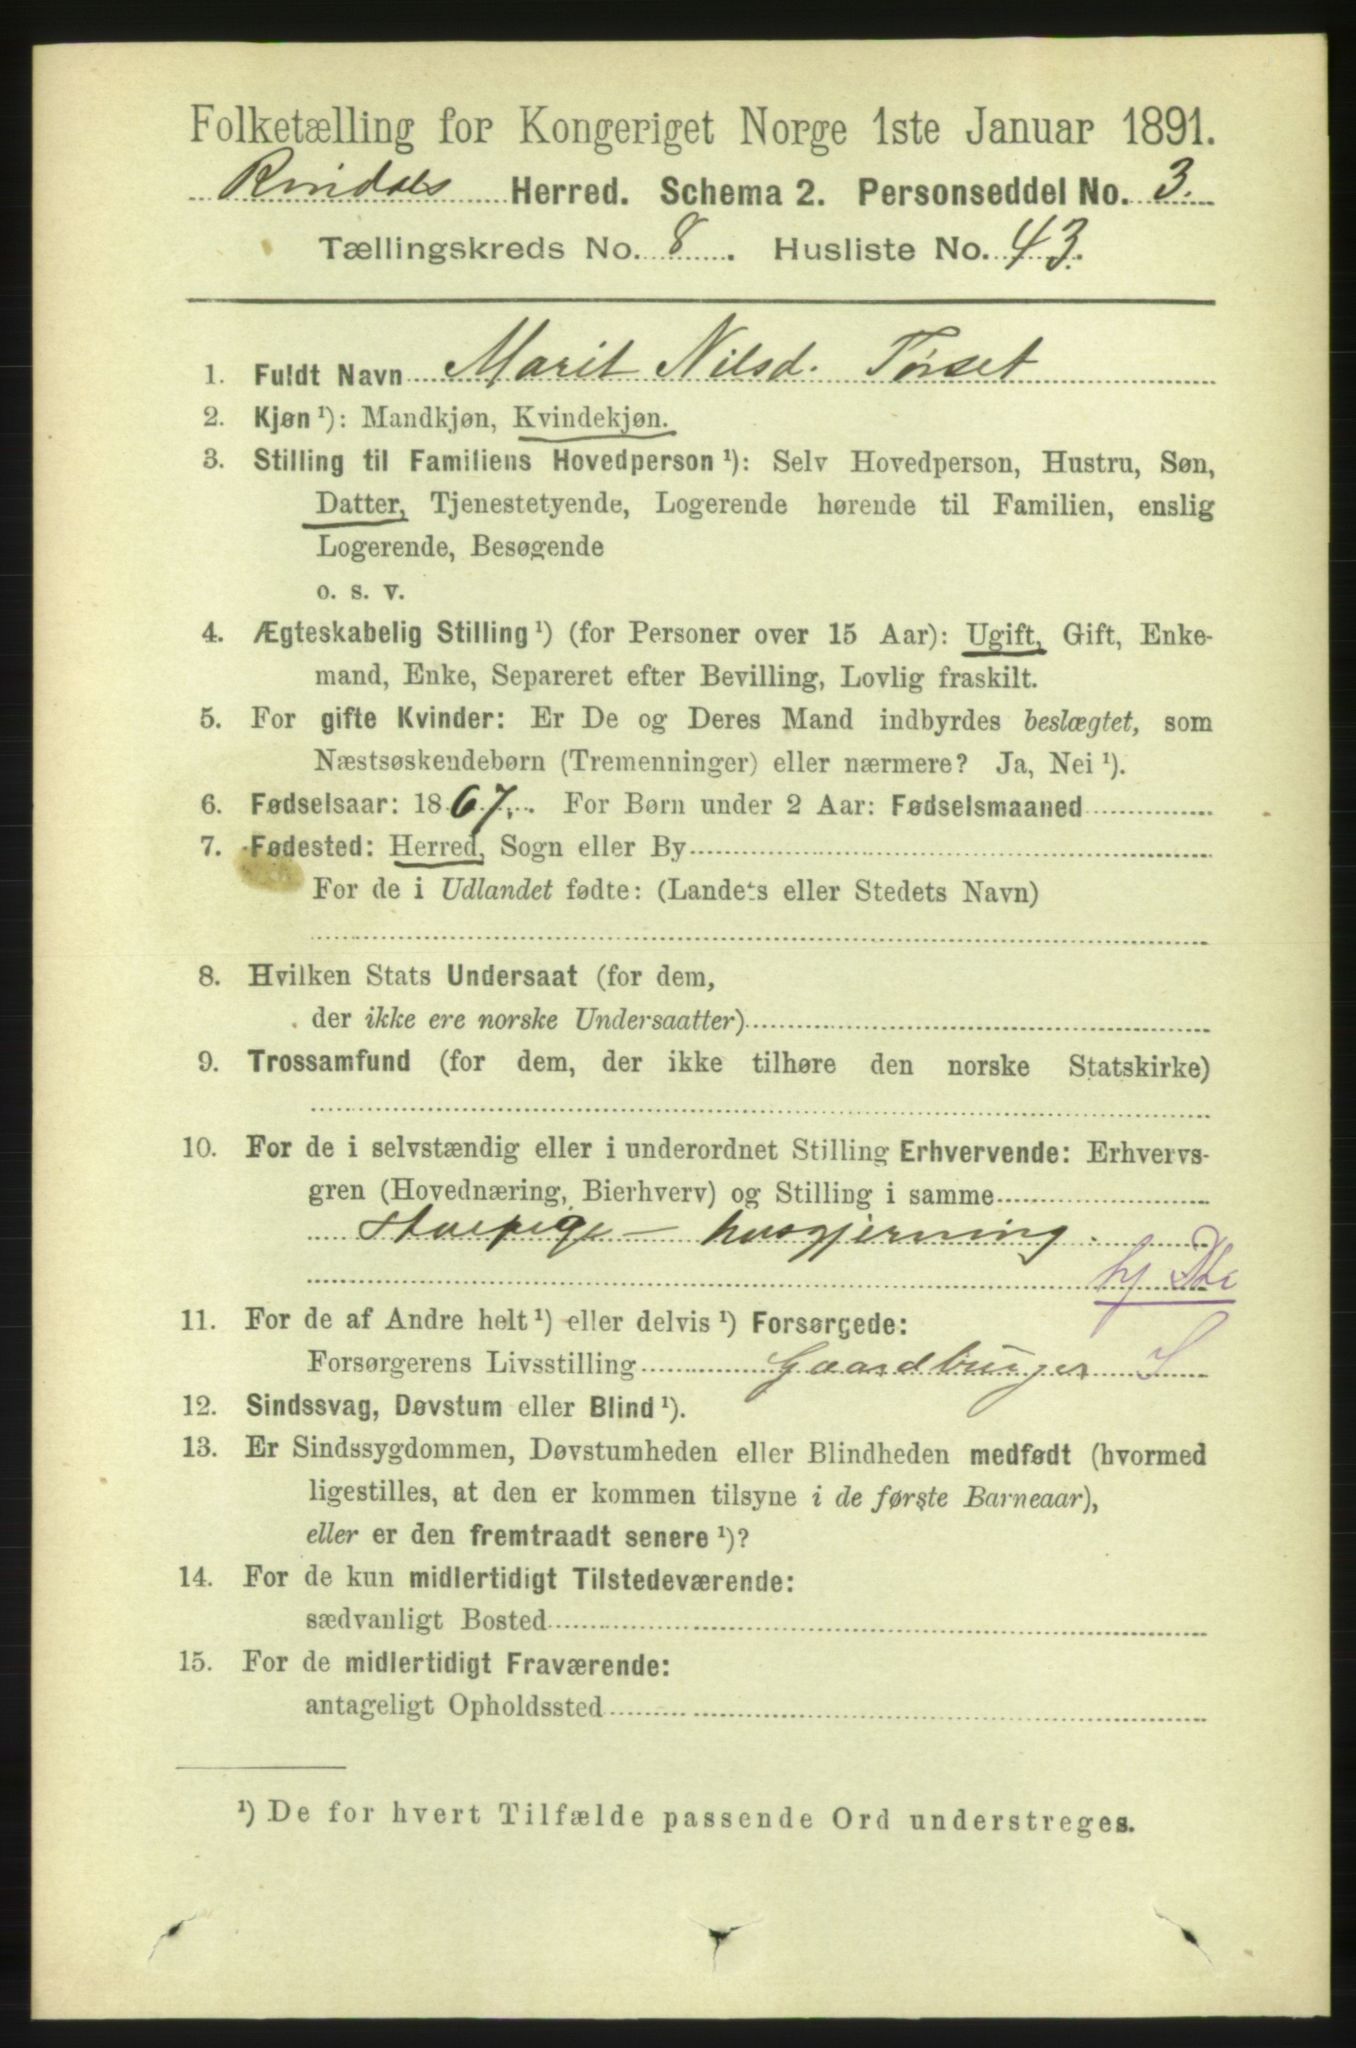 Folketælling for Kongeriget Norge 1ste Januar 1891.
Rindals Herred. Schema 2. Personseddel No. 3.
Tællingskreds No. 8. Husliste No. 43.
1. Fuldt Navn Marit Nilsd. Tørset
2. Kjøn ¹): Mandkjøn, Kvindekjøn.
3. Stilling til Familiens Hovedperson ¹): Selv Hovedperson, Hustru, Søn,
Datter, Tjenestetyende, Logerende hørende til Familien, enslig
Logerende, Besøgende
o. s. v.
4. Ægteskabelig Stilling ¹) (for Personer over 15 Aar): Ugift, Gift, Enke-
mand, Enke, Separeret efter Bevilling, Lovlig fraskilt.
5. For gifte Kvinder: Er De og Deres Mand indbyrdes beslægtet, som
Næstsøskendebørn (Tremenninger) eller nærmere? Ja, Nei ¹).
6. Fødselsaar: 1867. For Børn under 2 Aar: Fødselsmaaned
7. Fødested: Herred, Sogn eller By
For de i Udlandet fødte: (Landets eller Stedets Navn)
8. Hvilken Stats Undersaat (for dem,
der ikke ere norske Undersaatter)
9. Trossamfund (for dem, der ikke tilhøre den norske Statskirke)
10. For de i selvstændig eller i underordnet Stilling Erhvervende: Erhvervs-
gren (Hovednæring, Bierhverv) og Stilling i samme
Stuepige - husgjerning.
hj
11. For de af Andre helt ¹) eller delvis ¹) Forsørgede:
Forsørgerens Livsstilling Gaardbruger S
12. Sindssvag, Døvstum eller Blind ¹).
13. Er Sindssygdommen, Døvstumheden eller Blindheden medfødt (hvormed
ligestilles, at den er kommen tilsyne i de første Barneaar),
eller er den fremtraadt senere ¹)?
14. For de kun midlertidigt Tilstedeværende:
sædvanligt Bosted
15. For de midlertidigt Fraværende:
antageligt Opholdssted
¹) De for hvert Tilfælde passende Ord understreges.